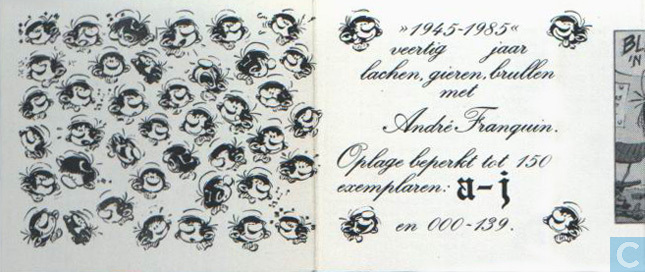 »1945-1985«
veertig jaar
lachen, gieren, brullen
met
André Franquin.
Oplage beperkt tot 150
exemplaren: a-j
en 000-139.
BL
'N
C